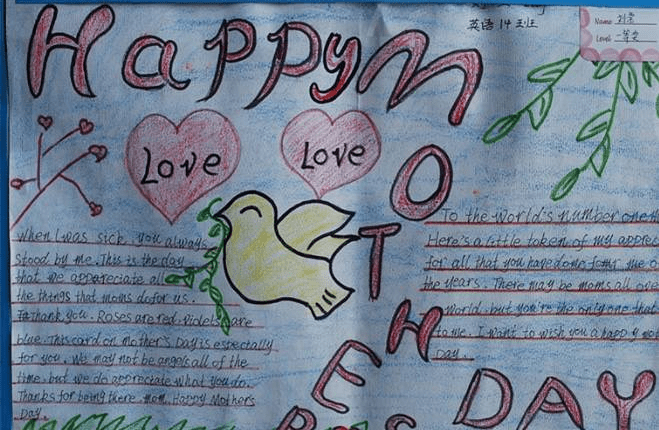 Happy
MOTHER
DAY
英语14班
Name
Level 一等奖
Love
Love
When I was sick, you always
stood by me. This is the day
that we appareciate all
the things that moms do for us.
To thank you. Roses are red. violets are
blue. This card on mother's Day is espectally
for you. We may not be angels all of the
time. but we do appreciate what you do.
Thanks for being there mom. Happy Mothers
Day.
To the world's number one
Here's a little token of my
for all that you have done for me
the years. There may be moms all over
world. but you're the only one that
to me. I want to wish you a happy
Day.